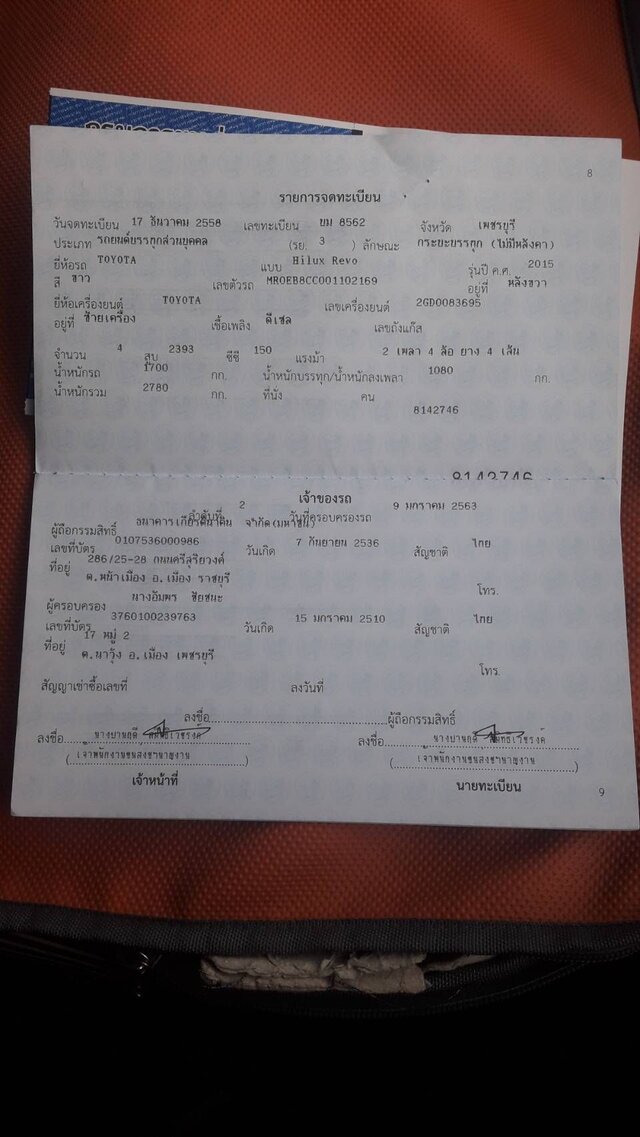 8
รายการจดทะเบียน
วันจดทะเบียน 17 ธันวาคม 2558 เลขทะเบียน บม 8562 จังหวัด เพชรบุรี
ประเภท รถยนต์บรรทุกส่วนบุคคล (รย. 3 ) ลักษณะ กระบะบรรทุก (ไม่มีหลังคา)
ยี่ห้อรถ TOYOTA แบบ Hilux Revo รุ่นปี ค.ศ. 2015
สี ขาว เลขตัวรถ MROEB8CC001102169 อยู่ที่ หลังขวา
ยี่ห้อเครื่องยนต์ TOYOTA เลขเครื่องยนต์ 2GD0083695
อยู่ที่ ซ้ายเครื่อง เชื้อเพลิง ดีเซล เลขถังแก๊ส
จำนวน 4 สูบ 2393 ซีซี 150 แรงม้า 2 เพลา 4 ล้อ ยาง 4 เส้น
น้ำหนักรถ 1700 กก. น้ำหนักบรรทุก/น้ำหนักลงเพลา 1080 กก.
น้ำหนักรวม 2780 กก. ที่นั่ง คน
8142746
8142746
เจ้าของรถ
ลำดับที่ 2 วันที่ครอบครองรถ 9 มกราคม 2563
ผู้ถือกรรมสิทธิ์ ธนาคารเกียรตินาคิน จำกัด(มหาชน)
เลขที่บัตร 0107536000986 วันเกิด 7 กันยายน 2536 สัญชาติ ไทย
ที่อยู่ 286/25-28 ถนนศรีสุริยวงศ์
ต.หน้าเมือง อ.เมือง ราชบุรี โทร.
ผู้ครอบครอง นางอัมพร ชัยชนะ
เลขที่บัตร 3760100239763 วันเกิด 15 มกราคม 2510 สัญชาติ ไทย
ที่อยู่ 17 หมู่ 2
ต.นาวุ้ง อ.เมือง เพชรบุรี โทร.
สัญญาเช่าซื้อเลขที่ ลงวันที่
ลงชื่อ ผู้ถือกรรมสิทธิ์
ลงชื่อ ลงชื่อ
(เจ้าพนักงานขนส่งชำนาญงาน) (เจ้าพนักงานขนส่งชำนาญงาน)
เจ้าหน้าที่ นายทะเบียน
9